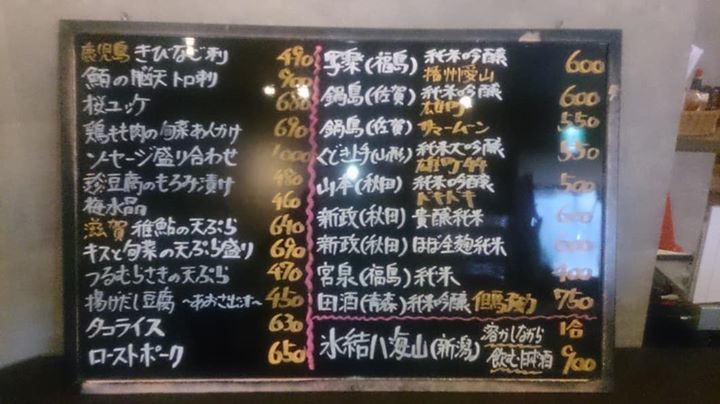 鹿児島 きびなご刺 490
鮪の脳天トロ刺 900
桜ユッケ 680
鶏もも肉の旬菜あんかけ 690
ソーセージ盛り合わせ 1000
豆腐のもろみ漬け 480
梅水晶 460
滋賀 稚鮎の天ぷら 640
キスと旬菜の天ぷら盛り 690
つるむらさきの天ぷら 470
揚げだし豆腐 〜あおさ出汁〜 450
タコライス 630
ローストポーク 650
写楽(福島) 純米吟醸 播州愛山 600
鍋島(佐賀) 純米吟醸 雄町 600
鍋島(佐賀) サマームーン 550
くどき上手(山形) 純米大吟醸 雄町44 550
山本(秋田) 純米吟醸 ドキドキ 500
新政(秋田) 貴醸純米 600
新政(秋田) ほぼ全麹純米 600
宮泉(福島) 純米 400
田酒(青森) 純米吟醸 750
氷結八海山(新潟) 溶かしながら 飲む日本酒 1合 900